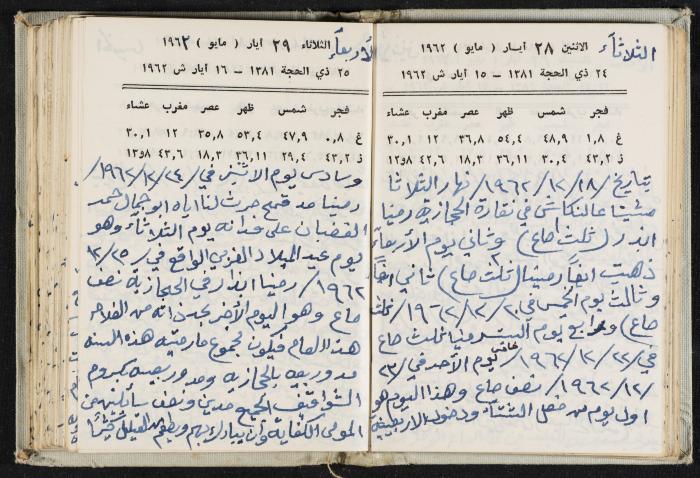 الثلاثاء
الاثنين ٢٨ أيار ( مايو ) ١٩٦٢
٢٤ ذي الحجة ١٣٨١ – ١٥ أيار ش ١٩٦٢
فجر شمس ظهر عصر مغرب عشاء
غ ١,٨ ٤٨,٩ ٥٤,٤ ٣٦,٨ ١٢ ٣٠,١
ز ٤٣,٢ ٣٠,٤ ٣٦,١١ ١٨,٣ ٤٢,٦ ٨و١٢
بتاريخ /١٨/ ١٢/ ١٩٦٢/ نهار الثلاثا
مشينا عالنكاش في نقارة الحجازيه رمينا
انذر (ثلث صاع) وثاني يوم الأربعاء
ذهبت ايضاً رمينا (ثلث صاع) ثاني ايضاً
وثالث يوم الخميس في /٢٠/ ١٢/ ١٩٦٢/ ثلث
صاع) ورابع يوم السبت رمينا ثلث صاع
في /٢٢/ ١٢/ ١٩٦٢/ خامس يوم الأحد في /٢٣
/١٢/ ١٩٦٢/ نصف صاع وهذا اليوم هو
اول يوم من فصل الشتاء ودخول الاربعينيه
الأربعاء
الثلاثاء ٢٩ أيار ( مايو ) ١٩٦٢
٢٥ ذي الحجة ١٣٨١ – ١٦ أيار ش ١٩٦٢
فجر شمس ظهر عصر مغرب عشاء
غ ٠,٨ ٤٧,٩ ٥٣,٤ ٣٥,٨ ١٢ ٣٠,١
ز ٤٣,٢ ٢٩,٤ ٣٦,١١ ١٨,٣ ٤٣,٦ ٨و١٣
وسادس يوم الاثنين في /٢٤/ ١٢/ ١٩٦٢/
رمينا مد قمح حرث لنا اياه ابو جمال حمد
القضبان على فدانه يوم الثلاثاء وهو
يوم عيد الميلاد الغربي الواقع في /٢٥/ ١٢
١٩٦٢/ رمينا انذار في الحجازية نصف
صاع وهو اليوم الأخر
هذا العام فيكون مجموع ما رميته هذه السنه
بالحجازيه
الجميع مدين ونصف سائلين من
المولى الكفاية وأن يبارك بهم ويطعم من القليل كثيراً